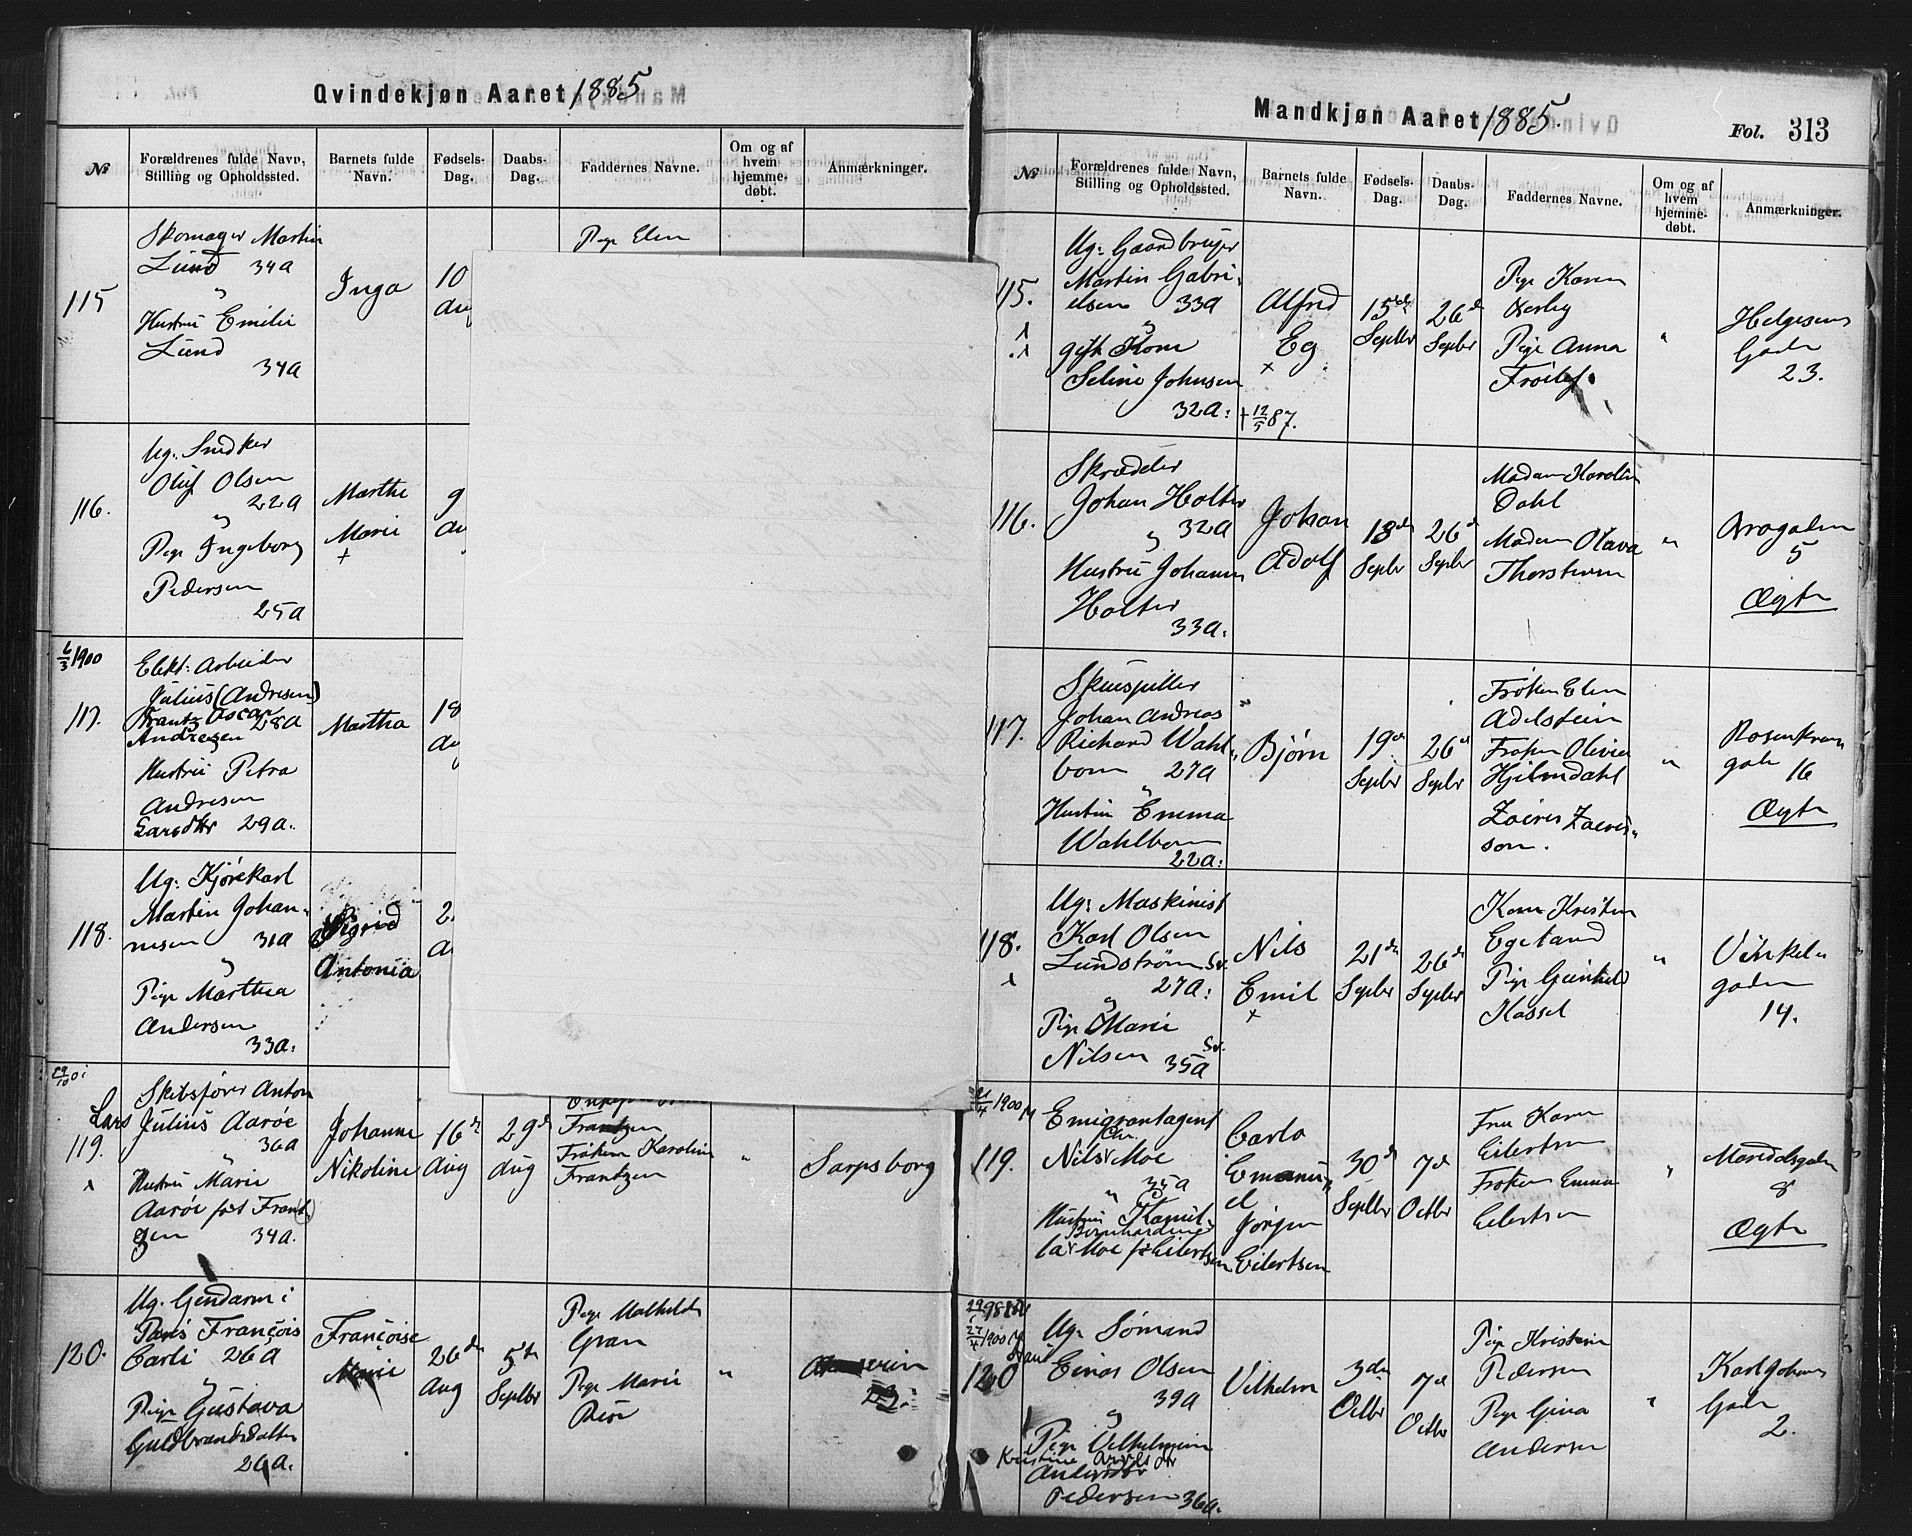 Qvindekjøn Aaret 1885
№
Forældrenes fulde Navn,
Stilling og Opholdssted.
Barnets fulde
Navn.
Fødsels-
Dag.
Daabs-
Dag.
Faddernes Navne.
Om og af
hvem
hjemme-
døbt.
Anmærkninger.
115
Skomager Martin
Lund 34a
Hustru Emilie
Lund
34a
Inga
10
aug
Pige Elen
116.
Ug: Snedker
Oluf Olsen
22a
Pige Ingeborg
Pedersen
25a
Marthe
Marie
+
9
6/3 1900
117.
Elekt: Arbeider
Julius (Andresen)
Frantz Oscar 28a
Andresen
Hustru Petra
Andresen
29a.
Martha
18
118.
Ug: Kjørekarl
Martin Johan-
nesen 31a
Pige Marthea
Andersen
33a.
Sigrid
Antonia
2
119.
Skibsfører Anton
Lars
Julius Aarøe
36a
Hustru Marie
Aarøe født Frant
zen 34a.
Johanne
Nikoline
16de
Aug
29de
Aug
Frantzen
Frøken Karoline
Frantzen
"
Sarpsborg
120.
Ug. Gendarm i
Paris François
Carli 26a
Pige Gustava
Guldbrandsdatter
26a.
Françoise
Marie
26de
Aug
5te
Septbr
Pige Mathilde
Gran
Pige Marie
"
Mandkjøn Aaret 1885.
Fol. 313
№
Forældrenes fulde Navn,
Stilling og Opholdssted.
Barnets fulde
Navn.
Fødsels-
Dag.
Daabs-
Dag.
Faddernes Navne.
Om og af
hvem
hjemme-
døbt.
Anmærkninger.
115.
Ug: Gaardbruger
Martin Gabri-
elsen 33a
gift Kone
Seline Johnsen
32a:
Alfred
Eg
+
† 12/5 87.
15de
Septbr
26de
Septbr
Pige Karen
Pige Anna
"
Helgesens
Gade
23.
116.
Skrædder
Johan Holter
32a
Hustru Johanne
Holter
33a.
Johan
Adolf
18de
Septbr
26de
Septbr
Madam Karoline
Dahl
Madam Olava
Thorstensen
"
Brogaden
5
Ægte
117.
Skuespiller
Johan Andreas
Richard Wahl-
bom 27a
Hustru Emma
Wahlbom
22a:
Bjørn
19de
Septbr
26de
Septbr
Frøken Elen
Adelstein
Frøken Olivia
Hjelmdahl
"
Rosenkran
gade 16
Ægte
118.
Ug: Maskinist
Karl Olsen
Lundstrøm Sv.
27a:
Pige Marie
Nilsen 35a Sv.
Nils
Emil
+
21de
Septbr
26de
Septbr
Kone Kristine
Egeland
Pige Gunhild
Hassel
"
Vinkel-
gaden
14.
119.
Emigrantagent
Chr.
Nils Moe
35a
Hustru Kamil
Bernhardine
la Moe f: Eilertsen
Carlo
Emanu-
el
Jørgen
Eilertsen
30de
Septbr
7de
Octbr
Fru Karen
Eilertsen
Frøken Emma
Eilertsen
"
Maridalsgaden
8
Ægte
120
Ug. Sømand
Einar Olsen
39a
Pige Vilhelmine
Kristine
Pedersen 36a.
Vilhelm
3die
Octbr
7de
Octbr
Pige Kristine
Pedersen
Pige Gina
Andersen
"
Karl Johans
Gade
2.